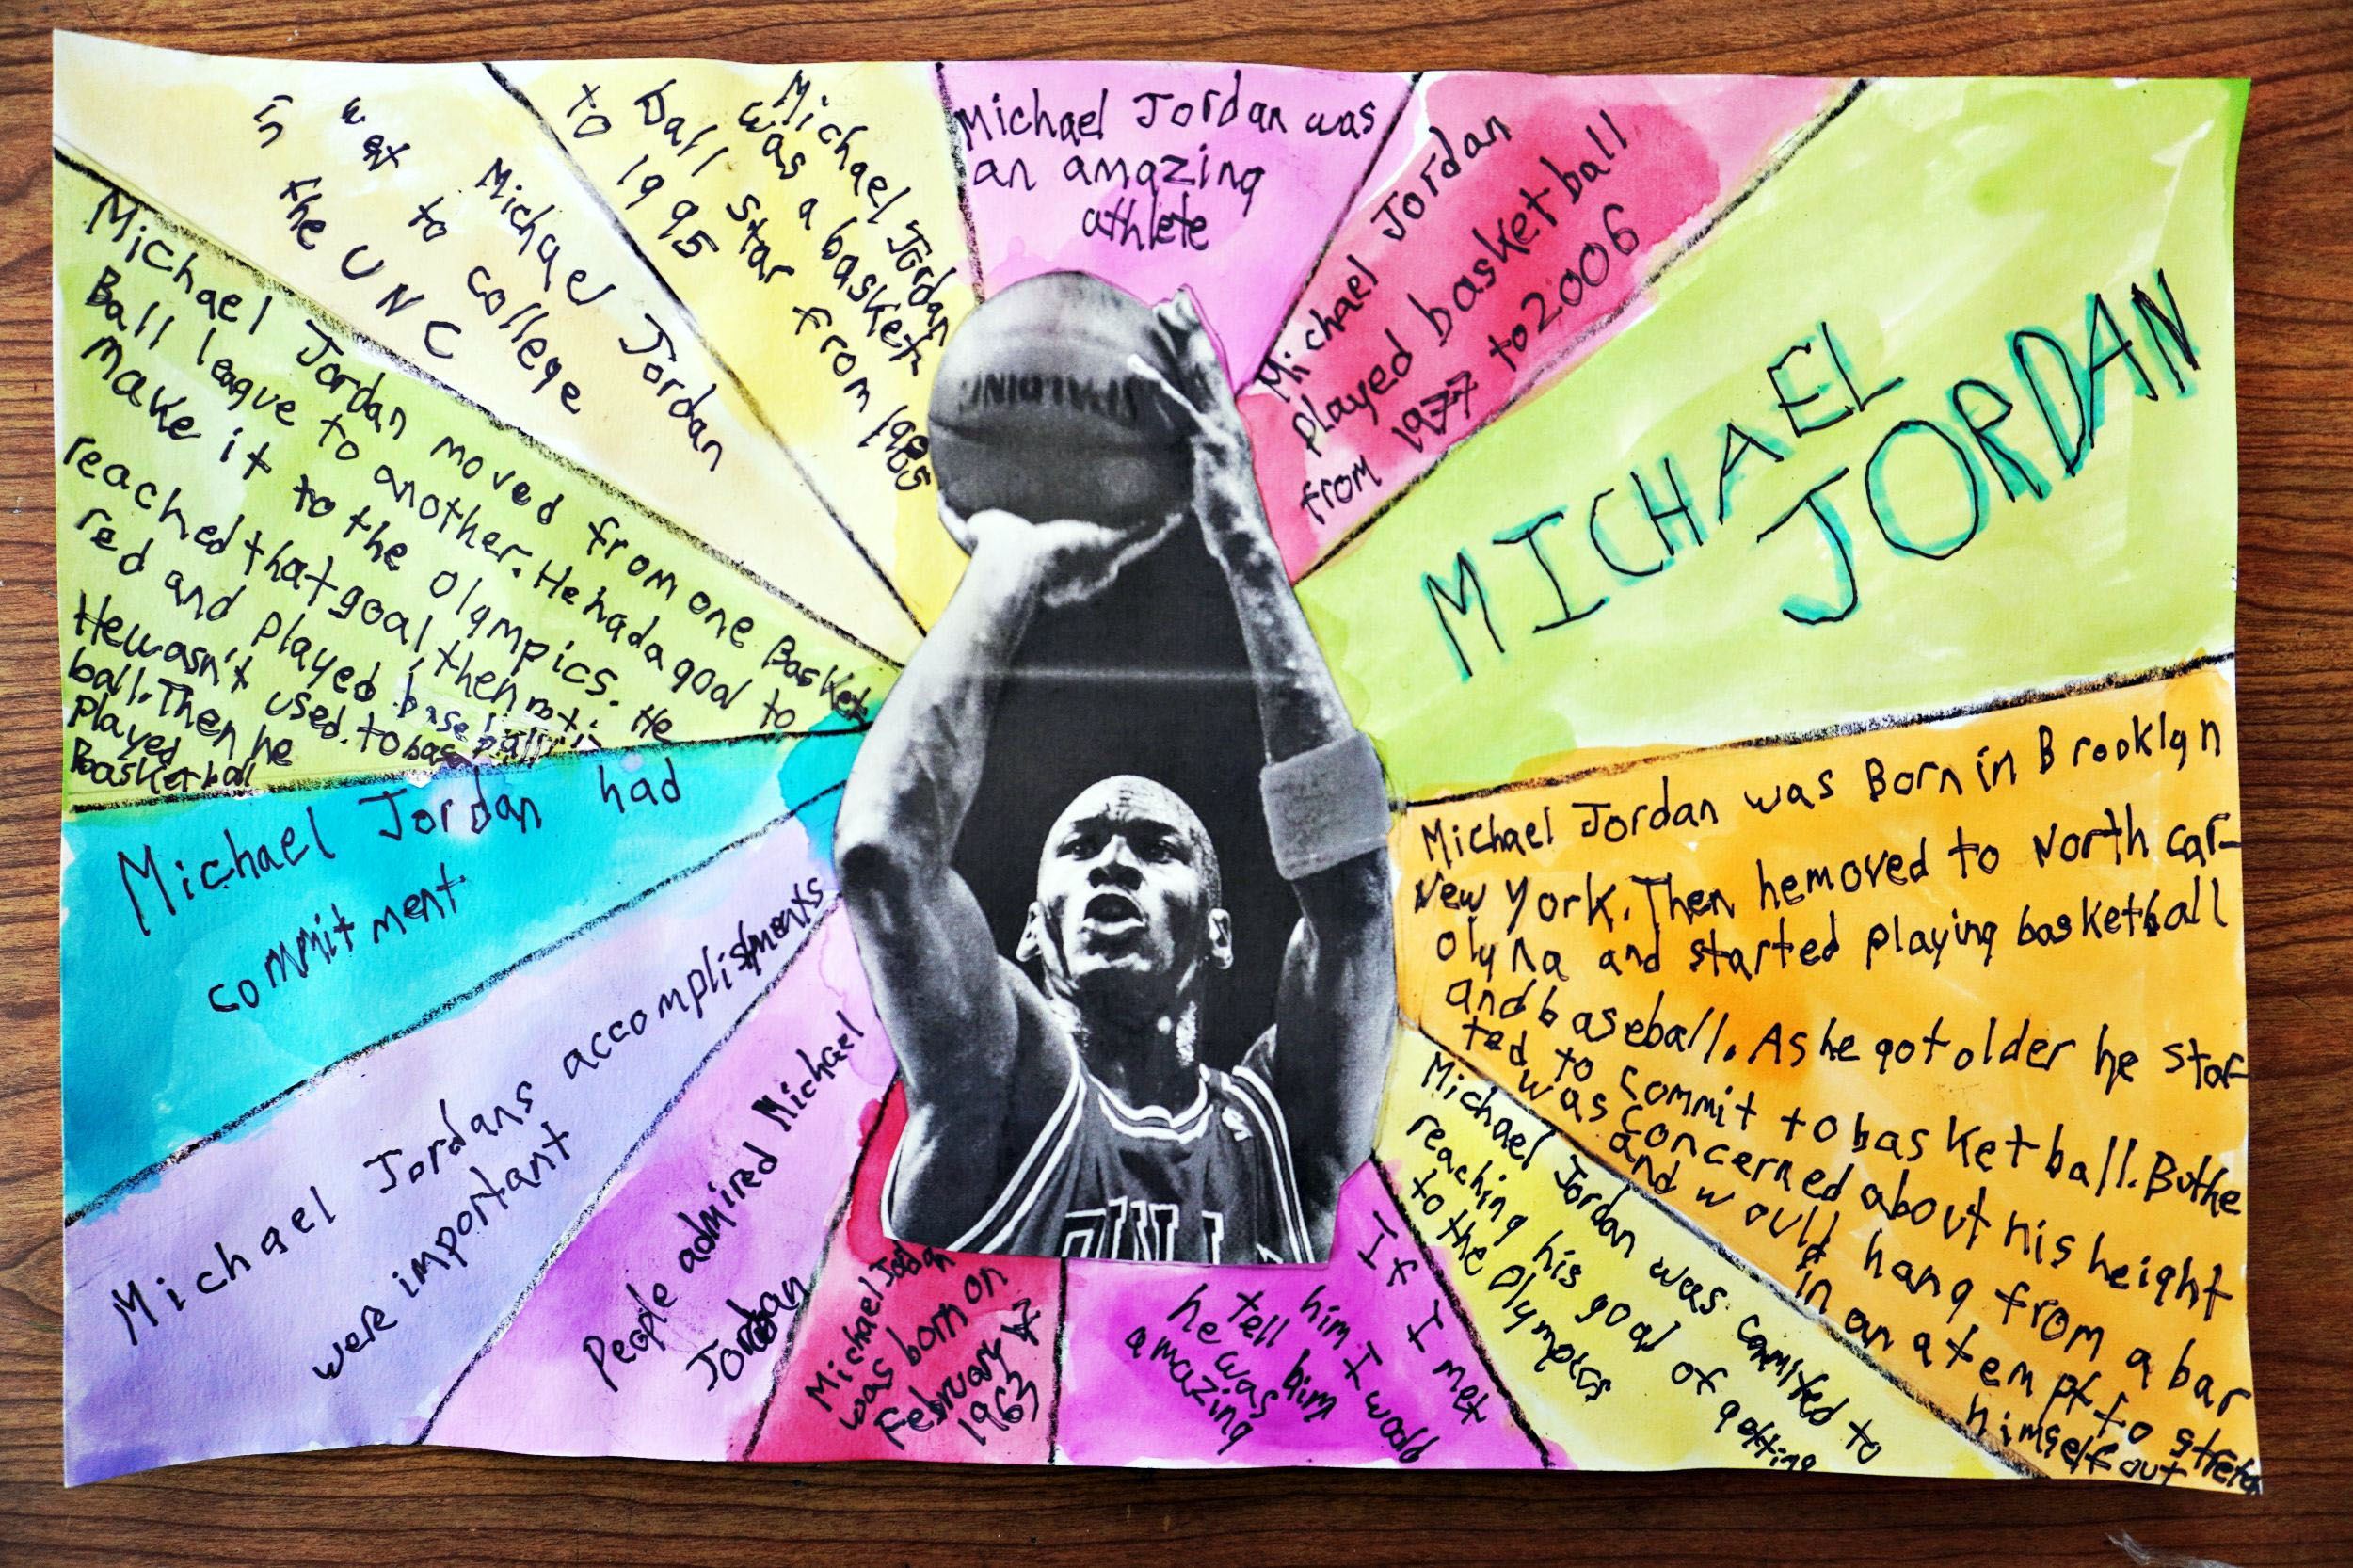 MICHAEL
JORDAN
Michael Jordan was Born in Brooklyn
New York. Then he moved to North Car-
olyna and started playing basketball
and baseball. As he got older he star-
ted to commit to basketball. But he
was concerned about his height
and would hang from a bar
in an atempt to stretch
himself out
Michael Jordan was commited to
reaching his goal of getting
to the Olympics
If I met
him I would
tell him
he was
amazing
Michael Jordan
was born on
February 17
1963
People admired Michael
Jordan
Michael Jordans accomplishments
were important
Michael Jordan had
commitment.
Michael Jordan moved from one Basket
Ball league to another. He had a goal to
make it to the Olympics. He
reached that goal, then
red and played baseball
He wasn't used to base
ball. Then he
played
Basketball
Michael Jordan
went to college
in the UNC
Michael Jordan
was a basket
Ball star from 1985
to 1995
Michael Jordan was
an amazing
athlete
Michael Jordan
played basketball
from 1977 to 2006
SPALDING
BULLS